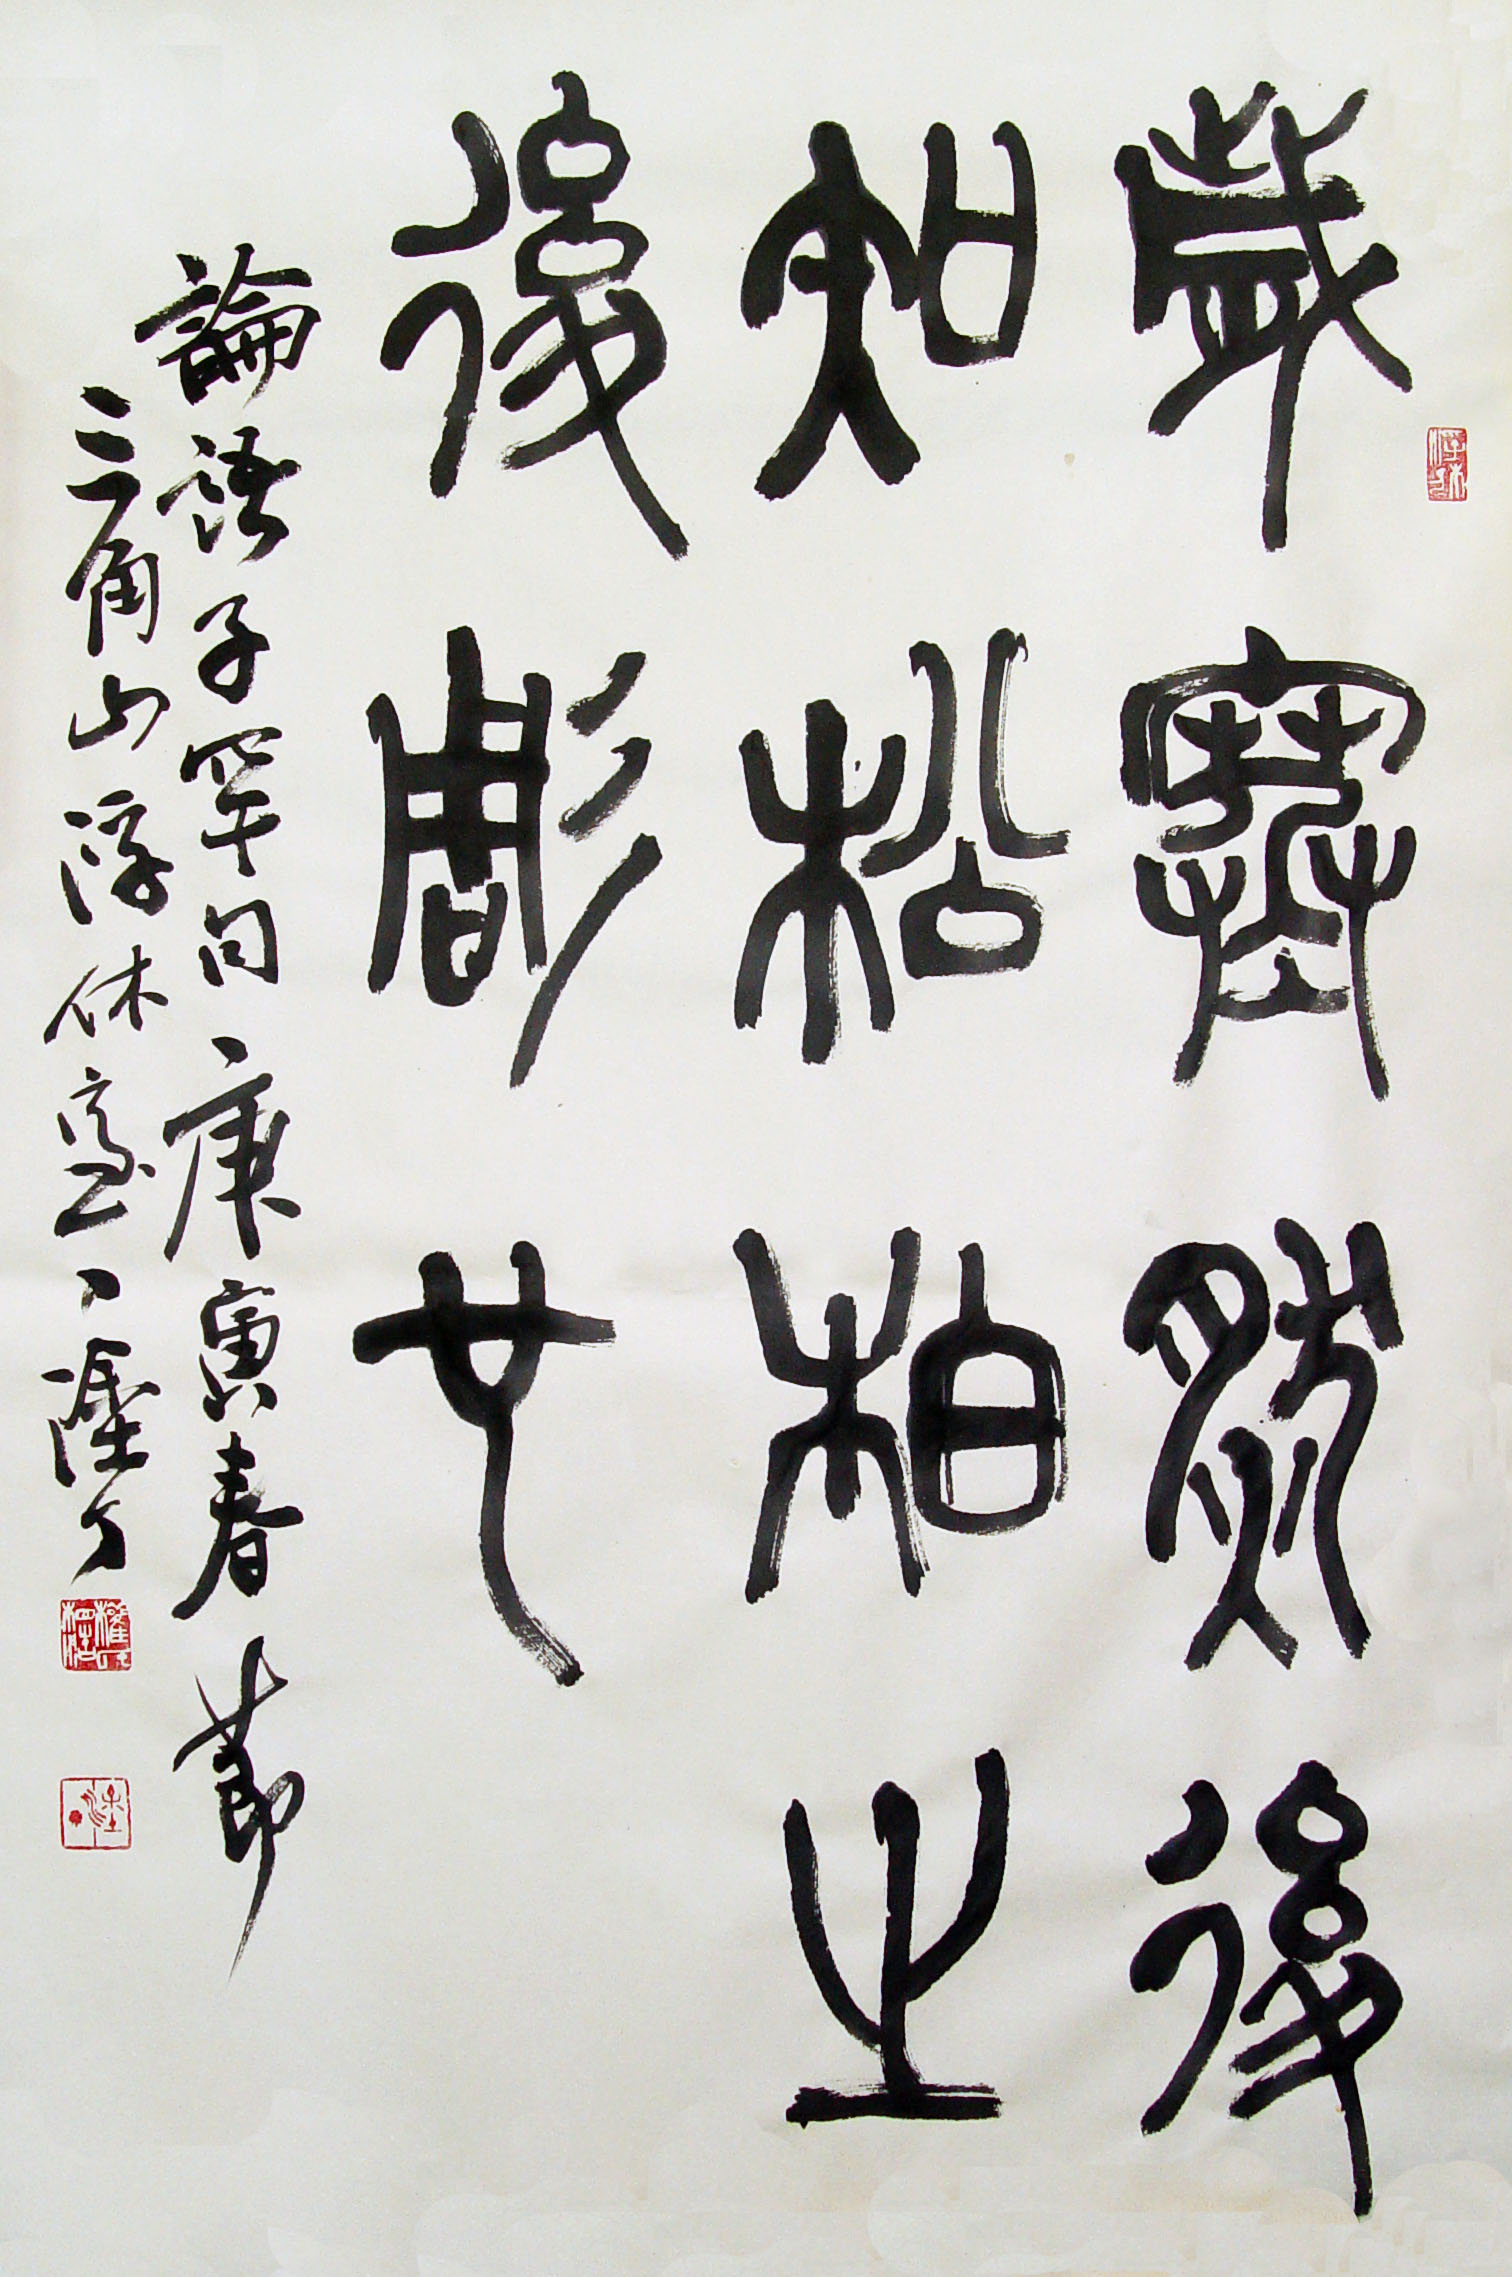 歲寒然後
知松柏之
後彫也
論語子罕句庚寅春節
三角山浮休室